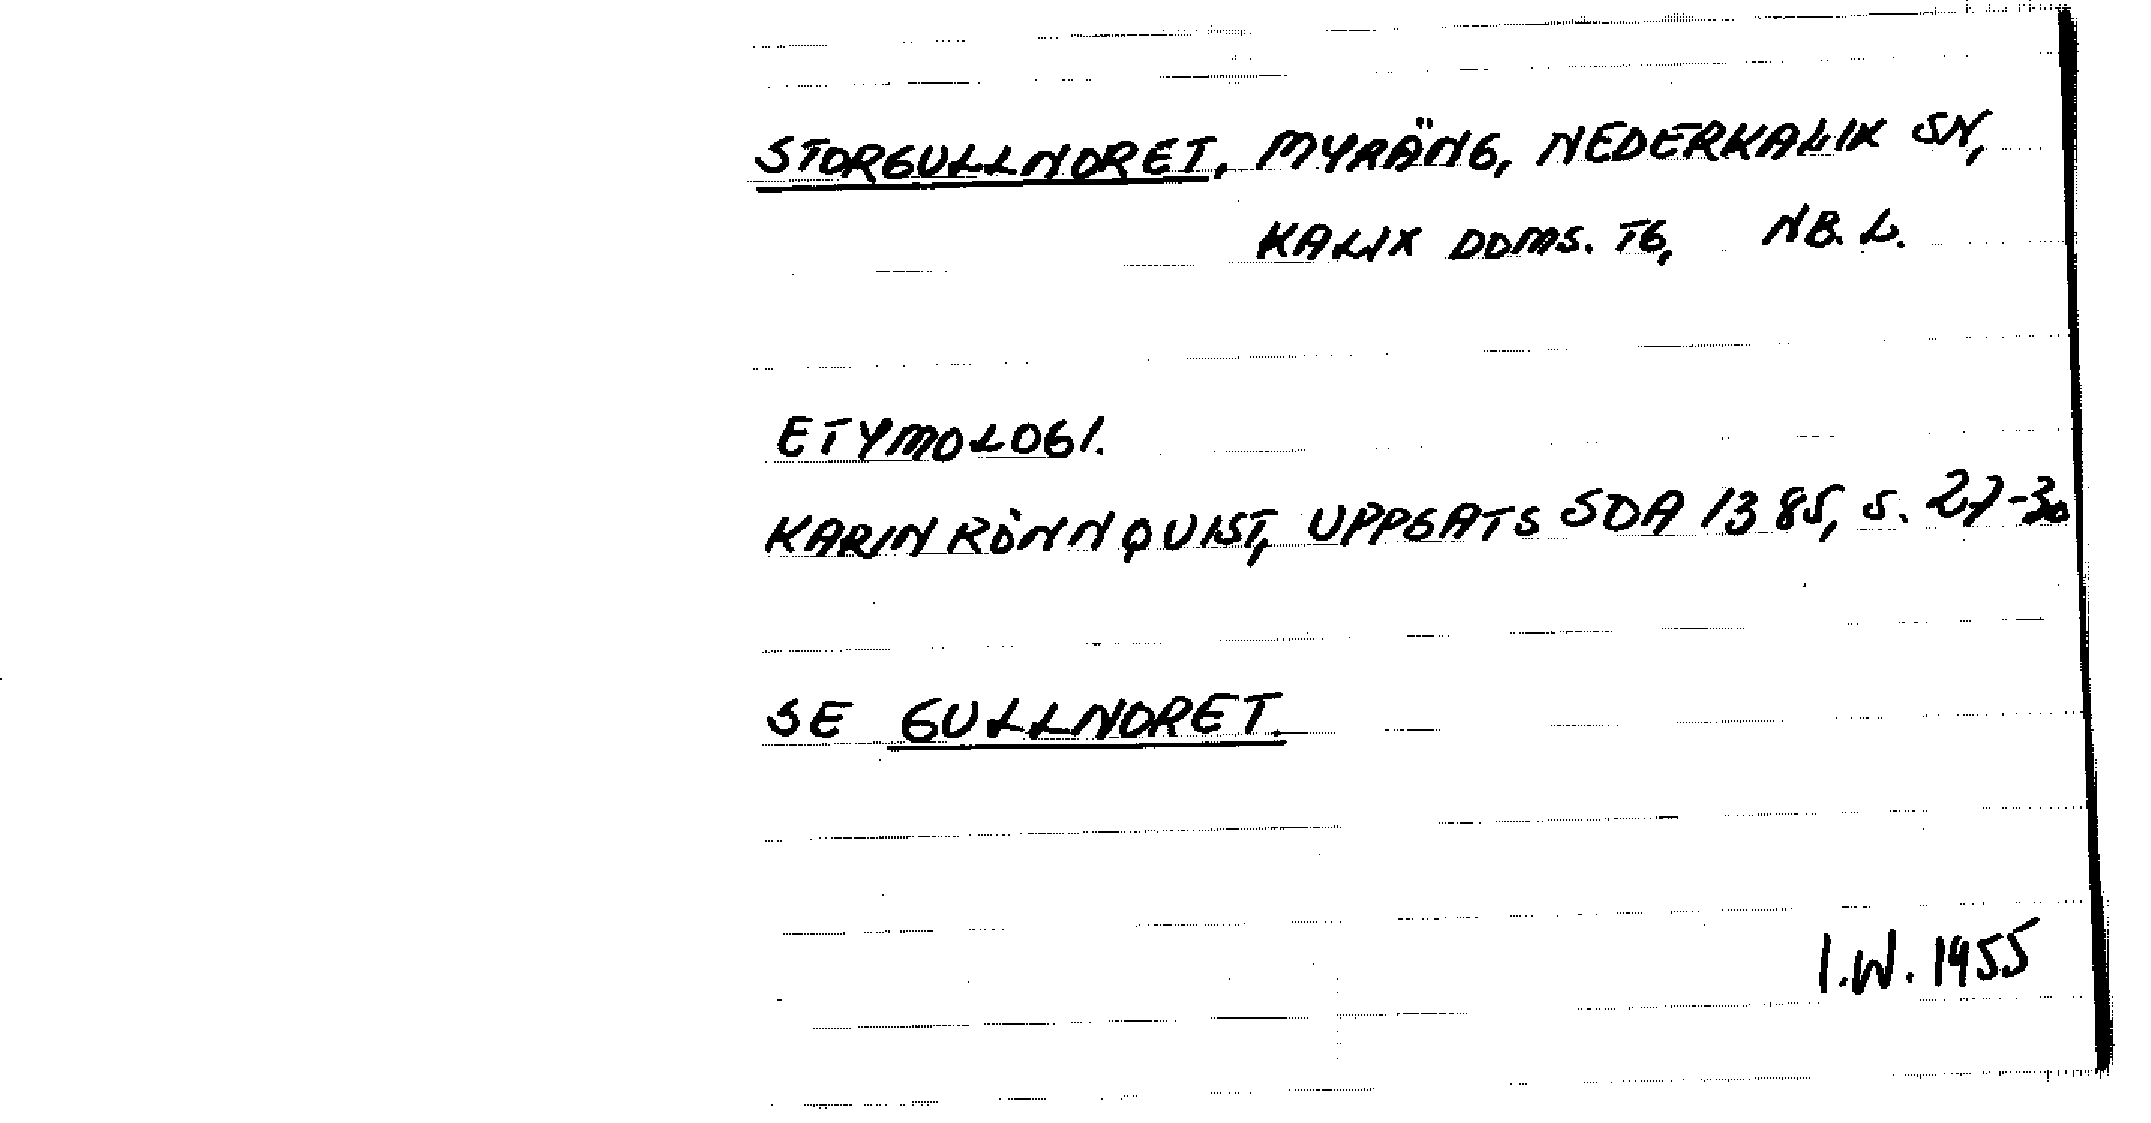 STORGULLNORET, MYRÄNG, NEDERKALIX SN,
KALIX DOMS. TG, NB. L.
ETYMOLOGI.
KARIN RÖNNQUIST, UPPGATS SOA 1385, S. 27-30
SE GULLNORET.
I.W. 1955